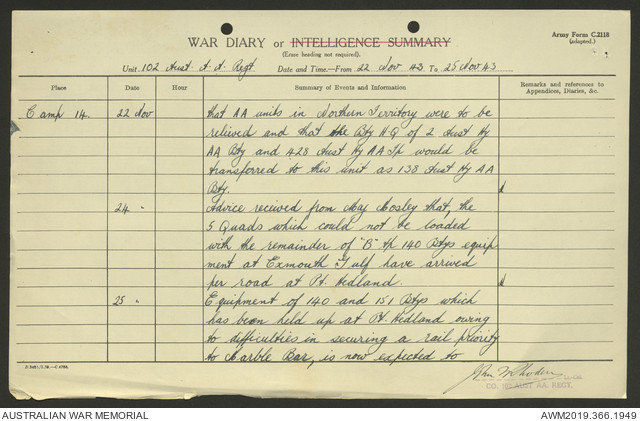 Army Form C.2118
(adapted.)
WAR DIARY or INTELLIGENCE SUMMARY
(Erase heading not required).
Unit 102 Aust. A.A. Regt. Date and Time—From 22 Nov 43 To 25 Nov 43
Place Date Hour Summary of Events and Information Remarks and references to Appendices, Diaries, &c.
Camp 14. 22 Nov that AA units in Northern Territory were to be
relieved and that the Bty H.Q of 2 Aust Hy
AA Bty and 428 Aust Hy AA Tp would be
transferred to this unit as 138 Aust Hy AA
Bty.
24 " Advice received from Maj Mosley that, the
5 Quads which could not be loaded
with the remainder of "B" Tp 140 Btys equip
ment at Exmouth Gulf have arrived
per road at Pt. Hedland.
25 " Equipment of 140 and 151 Btys which
has been held up at Pt. Hedland owing
to difficulties in securing a rail priority
to Marble Bar, is now expected to
CO. 102 AUST AA. REGT.
AUSTRALIAN WAR MEMORIAL AWM2019.366.1949